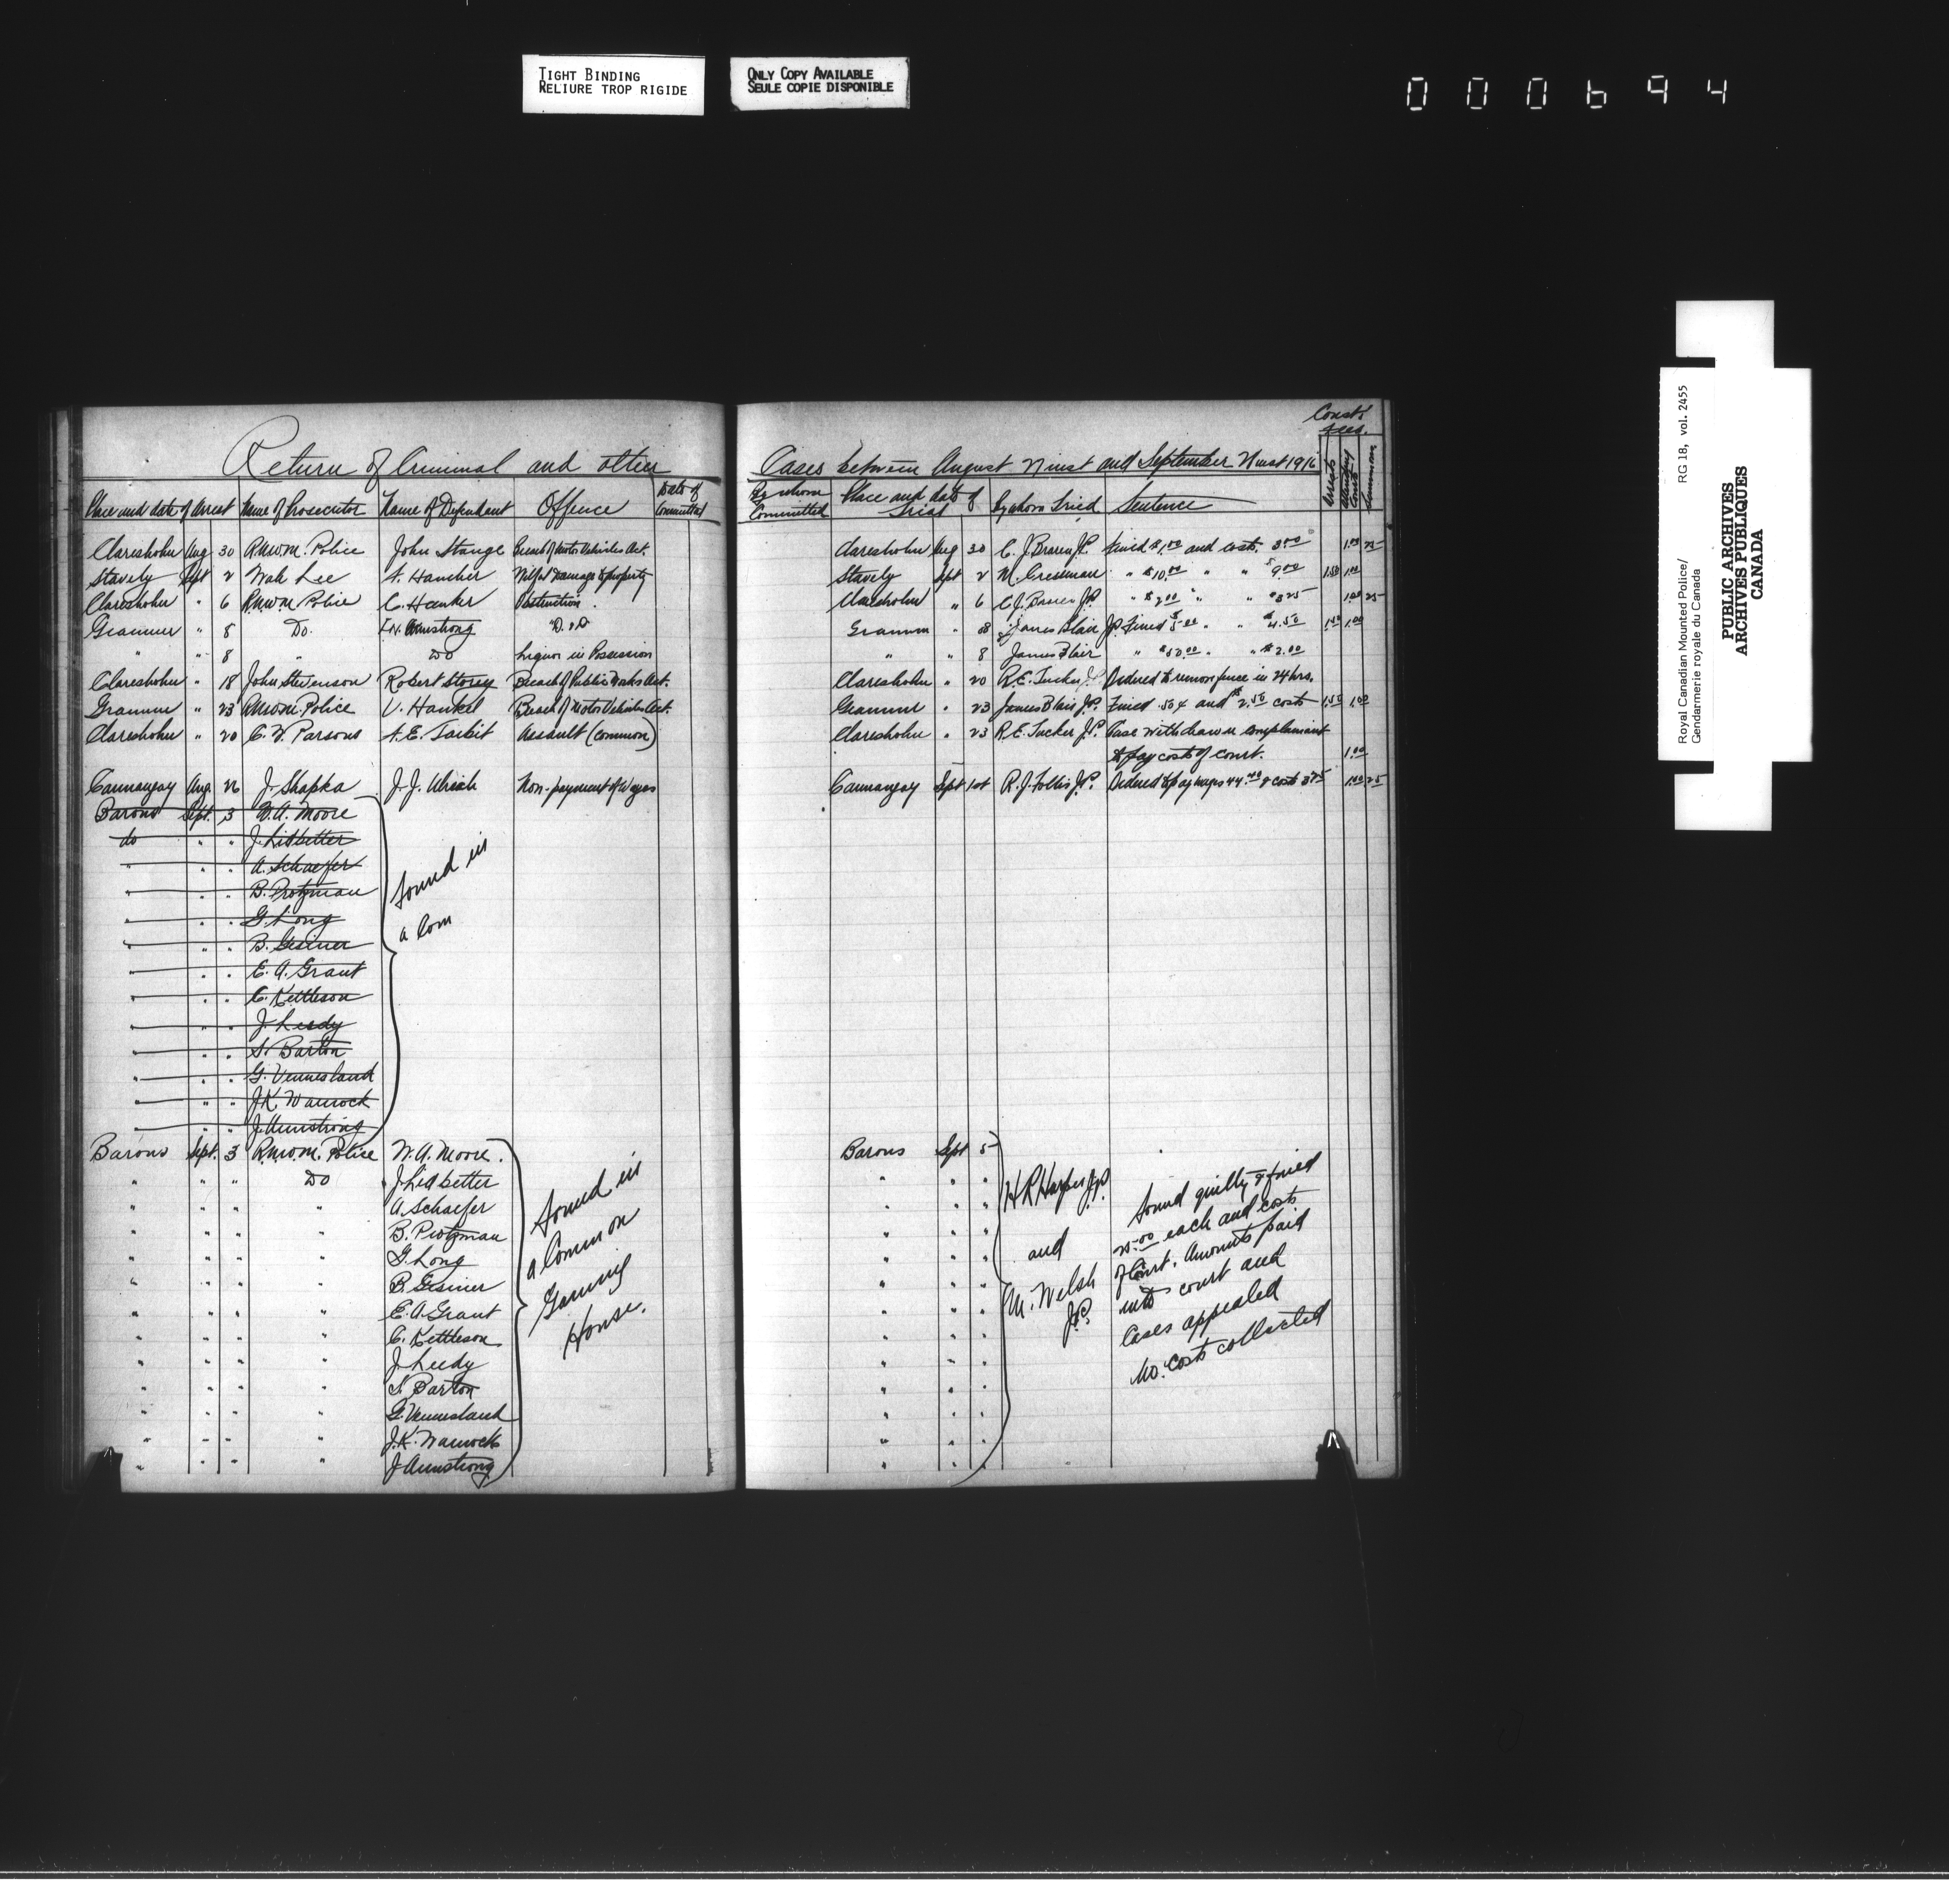 TIGHT BINDING
RELIURE TROP RIGIDE
ONLY COPY AVAILABLE
SEULE COPIE DISPONIBLE
000694
Royal Canadian Mounted Police/
Gendarmerie royale du Canada
RG 18, vol. 2455
PUBLIC ARCHIVES
ARCHIVES PUBLIQUES
CANADA
Const.
fees.
Return of Criminal and other Cases between August and September 1916
Place and date of Arrest Name of Prosecutor Name of Defendant Offence Date of Committal By whom Committed Place and date of Trial By whom Tried Sentence Arrests Attending Court Summons
Claresholm Aug 30 R.N.W.M. Police John Stange Breach of Motor Vehicles Act. Claresholm Aug 30 C. J. J.P. fined $1.00 and costs 3.00 1.00 25
Stavely Sept 2 Wah Lee Wilful Damage to property Stavely Sept 2 M. " $10.00 " " $9.00 1.50 1.00
Claresholm " 6 R.N.W.M. Police C. Obstruction. Claresholm " 6 C. J. J.P. " $2.00 " " 1.00 25
Granum " 8 Do. Armstrong "D. & D Granum " 8 James Blair J.P. Fined $5.00 " " $4.50 1.50 1.00
" " 8 " Do Liquor in Possession " " 8 James Blair " $50.00 " " $2.00
Claresholm " 18 John Stevenson Robert Storey Breach of Public Works Act. Claresholm " 20 R.E. Tucker J.P. Ordered to remove fence in 24 hrs.
Granum " 23 R.N.W.M. Police V. Hankel Breach of Motor Vehicles Act. Granum " 23 James Blair J.P. Fined .50 ¢ and $2.50 costs 1.50 1.00
Claresholm " 20 C. W. Parsons A. E. Tarbit Assault (common) Claresholm " 23 R.E. Tucker J.P. Case withdrawn complainant
to pay costs of court. 1.00
Carmangay Aug. 26 J. Shapka J. J. Ulrich Non-payment of Wages Carmangay Sept 1st R. J. Follis J.P. Ordered to pay wages 44. & costs 1.00 25
Barons Sept. 3 W. A. Moore
do " " J. Lidbetter
" " " A. Schaefer
" " " B. Protzman
" " " G. Long
" " " B. Gesiner
" " " E. A. Grant
" " " C. Kettleson
" " " J. Leedy
" " " S. Barton
" " " G. Vennesland
" " " J. K. Warnock
" " " J. Armstrong
found in
a Com
Barons Sept. 3 R.N.W.M. Police W. A. Moore. Barons Sept 5
" " " Do J. Lidbetter " " "
" " " " A. Schaefer " " "
" " " " B. Protzman " " "
" " " " G. Long " " "
" " " " B. Gesiner " " "
" " " " E. A. Grant " " "
" " " " C. Kettleson " " "
" " " " J. Leedy " " "
" " " " S. Barton " " "
" " " " G. Vennesland " " "
" " " " J. K. Warnock " " "
" " " " J. Armstrong " " "
found in
a Common
Gaming
House.
H R Harper J.P.
and
M. Welsh
J.P.
found guilty & fined
25.00 each and costs
of Court. Amounts paid
into court and
Cases appealed
No. Costs collected